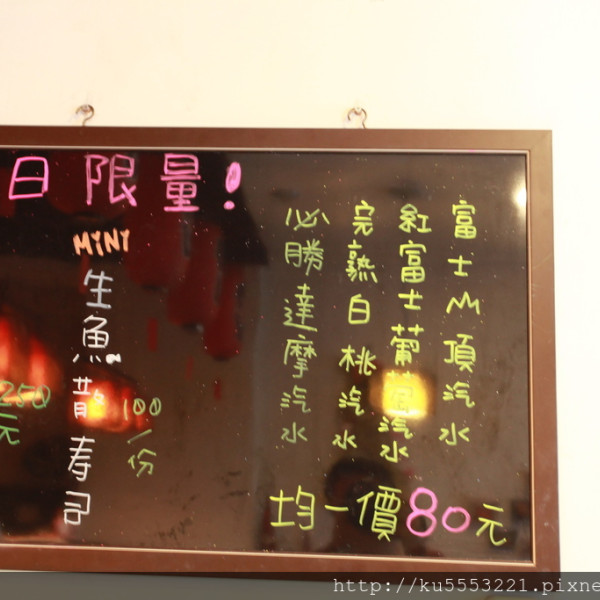 日限量!
富士山頂汽水
紅富士葡萄汽水
完熟白桃汽水
必勝達摩汽水
均一價80元
MINI
生魚散寿司
100/份
250元
http://ku5553221.pixne